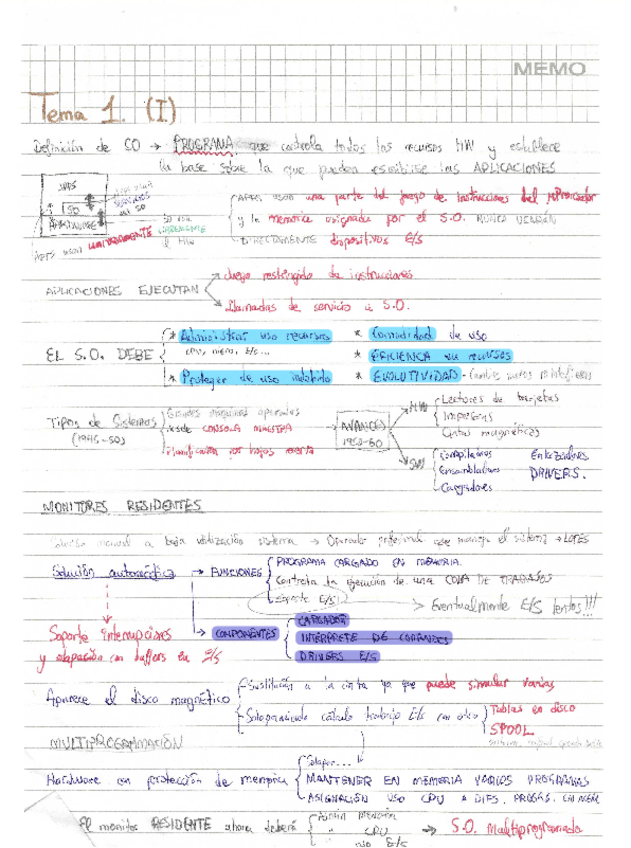 MEMO
Tema 1. (I)
Definición de CO → PROGRAMA que controla todos los recursos HW y establece
la base sobre la que pueden escribirse las APLICACIONES
APPS
SO
HARDWARE
APPS usan una parte del juego de instrucciones del µProcesador
y la memoria asignada por el S.O. NUNCA
DIRECTAMENTE dispositivos E/S
APPS usan
Juego restringido de instrucciones
APLICACIONES EJECUTAN
Llamadas de servicio a S.O.
* Administrar uso recursos * Comodidad de uso
EL S.O. DEBE CPU, mem, E/S... * EFICIENCIA en recursos
* Proteger de uso indebido * EVOLUTIVIDAD
Lectores de tarjetas
Tipos de Sistemas Grandes máquinas operadas HW Impresoras
(1945-50) desde CONSOLA MAESTRA AVANCES 1950-60 Cintas magnéticas
Planificación por hojas reserva SW Compiladores Enlazadores
Ensambladores DRIVERS.
Cargadores
MONITORES RESIDENTES
Solución manual a baja utilización sistema → Operador profesional que maneja el sistema → LOTES
PROGRAMA CARGADO EN MEMORIA.
Solución automática → FUNCIONES Controla la ejecución de una COLA DE TRABAJOS
Soporte E/S → Eventualmente E/S lentos!!!
Soporte interrupciones CARGADOR
→ COMPONENTES INTÉRPRETE DE COMANDOS
y adaptación con buffers en E/S DRIVERS E/S
Sustitución a la cinta ya que puede simular varias
Aparece el disco magnético
Solapamiento cálculo trabajo E/S con otro Tablas en disco
SPOOL
MULTIPROGRAMACIÓN
Solapar...
Hardware con protección de memoria MANTENER EN MEMORIA VARIOS PROGRAMAS
ASIGNACIÓN USO CPU A DIFS. PROGS. EN MEM
El monitor RESIDENTE ahora deberá Admin memoria
" CPU → S.O. Multiprogramado
" uso E/S